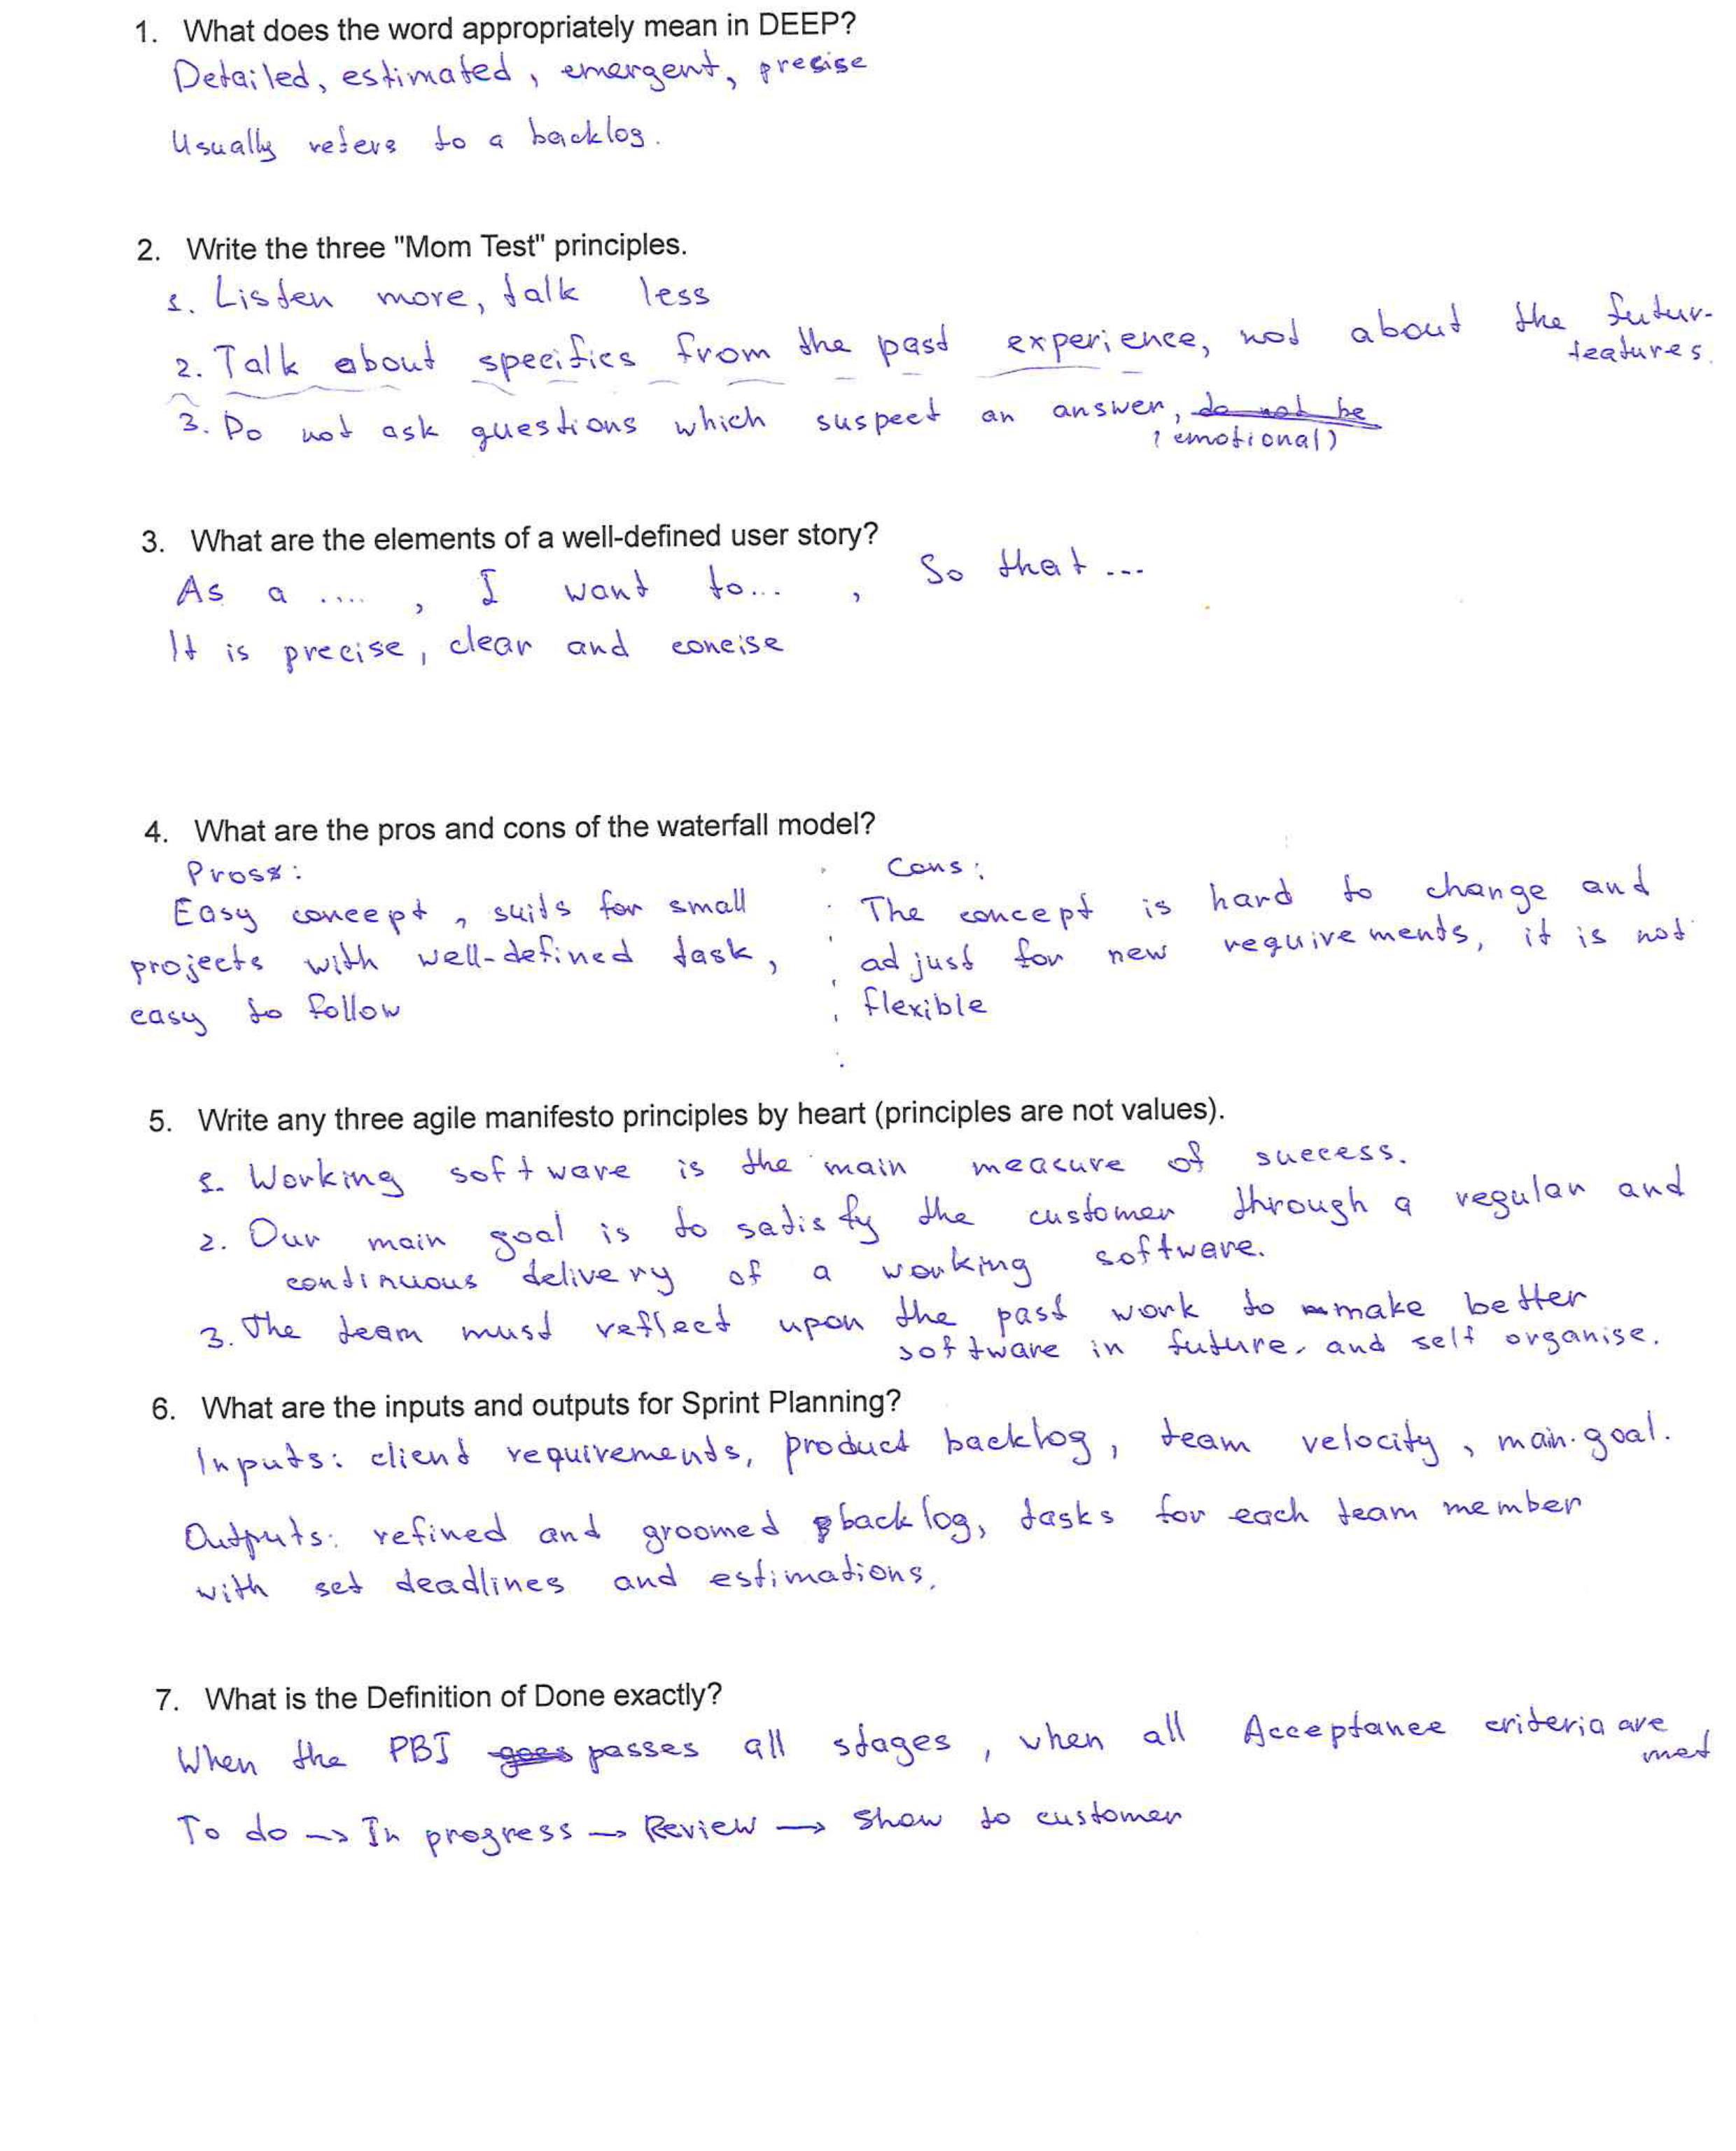 1. What does the word appropriately mean in DEEP?
Detailed, estimated, emergent, presise
Usually refers to a backlog.
2. Write the three "Mom Test" principles.
1. Listen more, talk less
2. Talk about specifics from the past experience, not about the futur-
features.
3. Do not ask questions which suspect an answer, do not be
(emotional)
3. What are the elements of a well-defined user story?
As a ...., I want to..., So that ...
It is precise, clear and concise
4. What are the pros and cons of the waterfall model?
Pros: Cons:
Easy concept, suits for small The concept is hard to change and
projects with well-defined task, adjust for new requirements, it is not
easy to follow flexible
5. Write any three agile manifesto principles by heart (principles are not values).
1. Working software is the main measure of success.
2. Our main goal is to satisfy the customer through a regular and
continuous delivery of a working software.
3. The team must reflect upon the past work to make better
software in future, and self organise.
6. What are the inputs and outputs for Sprint Planning?
Inputs: client requirements, product backlog, team velocity, main goal.
Outputs: refined and groomed backlog, tasks for each team member
with set deadlines and estimations.
7. What is the Definition of Done exactly?
When the PBI goes passes all stages, when all Acceptance criteria are
met
To do → In progress → Review → Show to customer